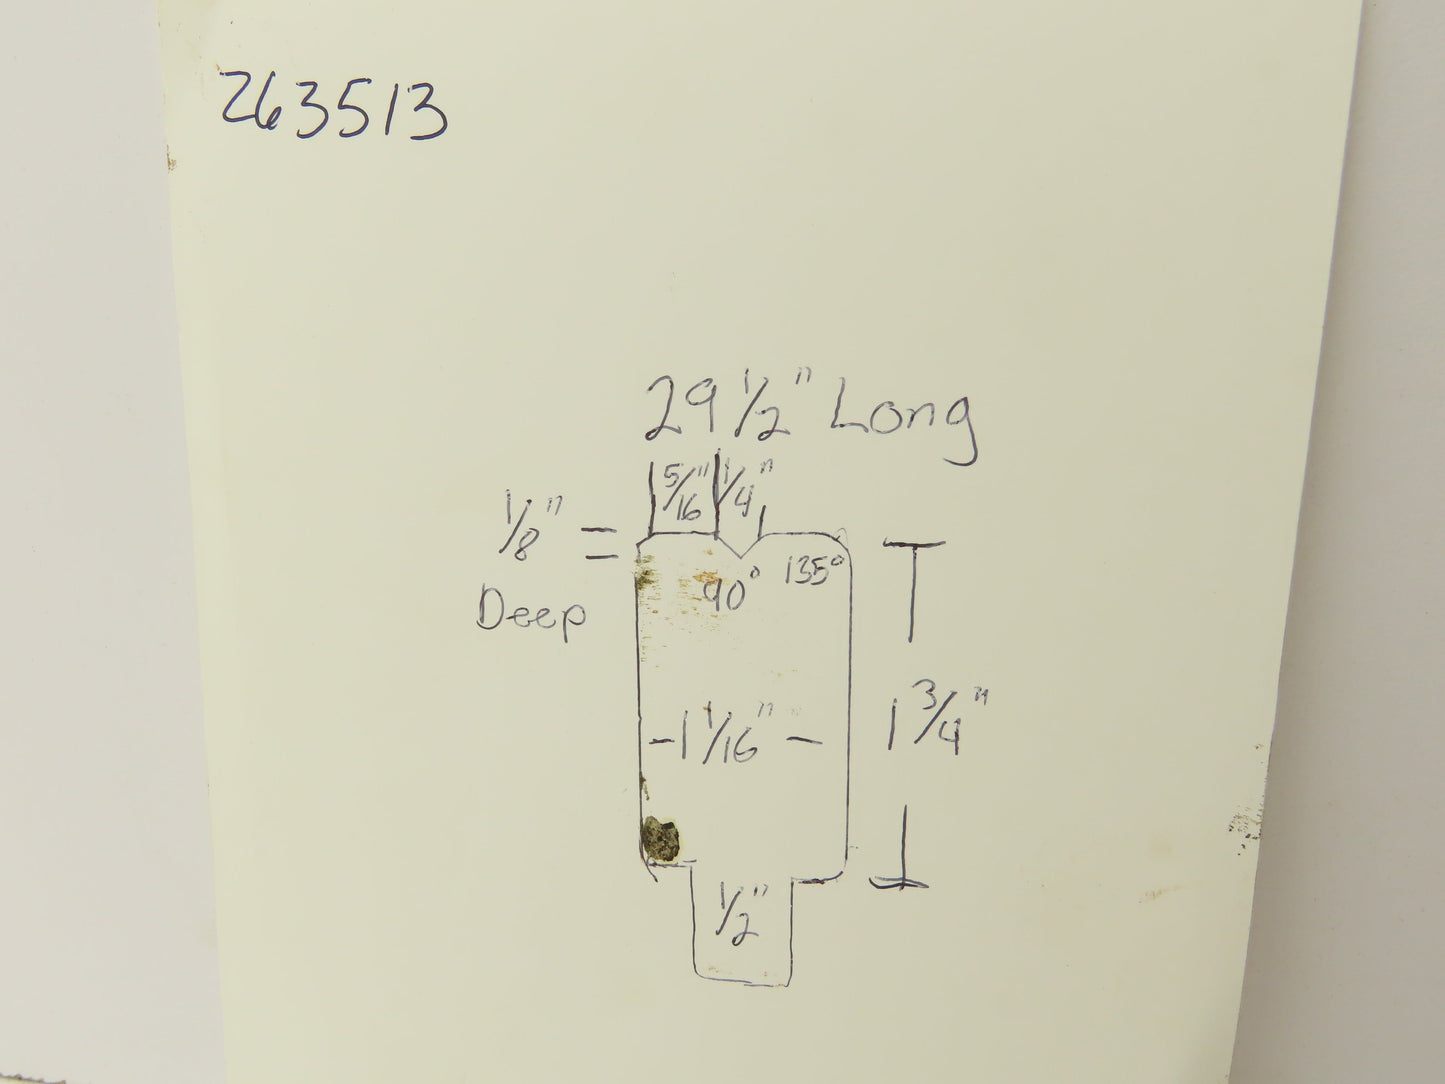 263513
29 1/2" Long
5/16" 1/4"
1/8"
Deep
90° 135°
1 3/4"
-1 1/16" -
1/2"